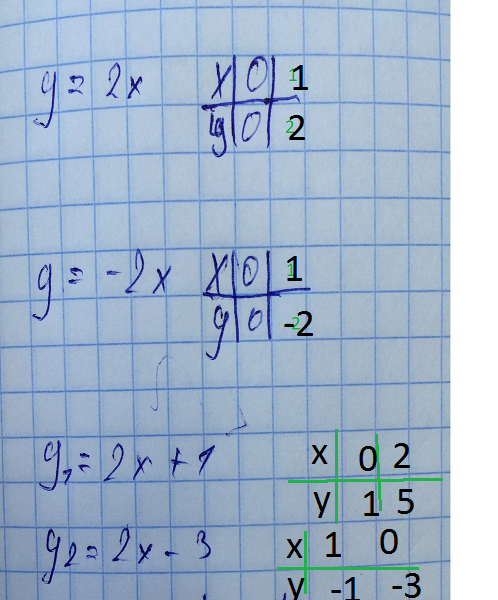 y = 2x x 0 1
y 0 2
y = -2x x 0 1
y 0 -2
y₁ = 2x + 1 x 0 2
y 1 5
y₂ = 2x - 3 x 1 0
y -1 -3